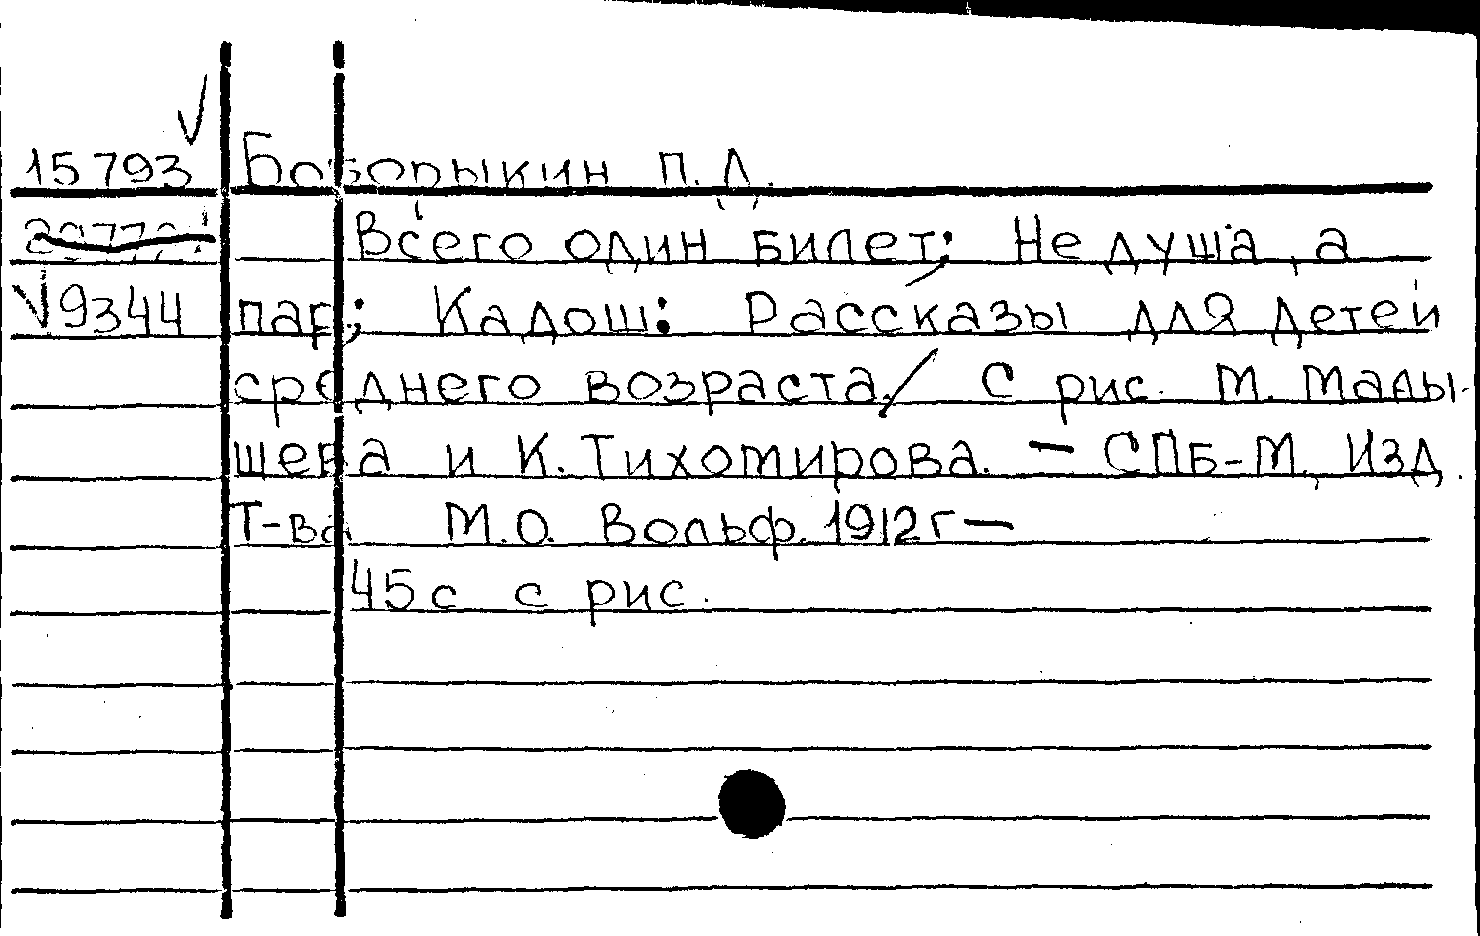 15793 Боборыкин П.Д.
Всего один билет; Не душа, а
√9344 пар; Кадош: Рассказы для детей
среднего возраста / С рис. М. Малы-
шева и К. Тихомирова. — СПБ-М, Изд.
Т-ва М.О. Вольф. 1912г —
45с с рис.